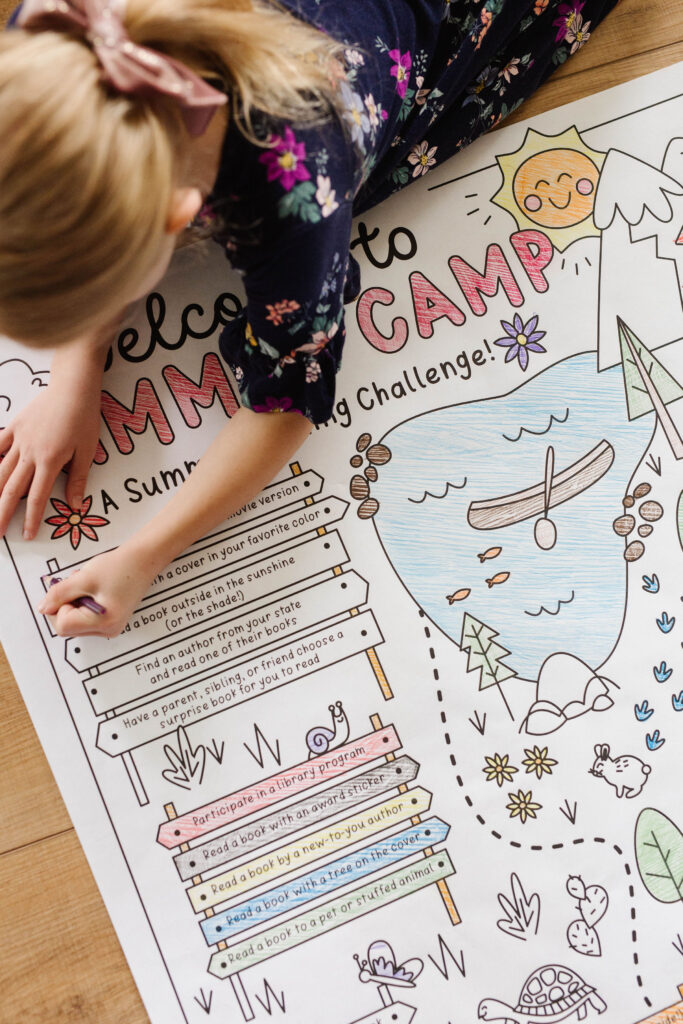 Welcome to
MM CAMP
A Summ ing Challenge!
movie version
with a cover in your favorite color
a book outside in the sunshine
(or the shade!)
Find an author from your state
and read one of their books
Have a parent, sibling, or friend choose a
surprise book for you to read
Participate in a library program
Read a book with an award sticker
Read a book by a new-to-you author
Read a book with a tree on the cover
Read a book to a pet or stuffed animal